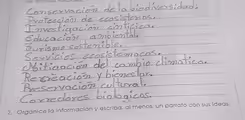 Conservación de la biodiversidad.
Protección de ecosistemas.
Investigación científica.
Educación ambiental
Turismo sostenible.
Servicios ecosistémicos.
Mitigación del cambio climático.
Recreación y bienestar.
Preservación cultural.
Corredores biológicos.
Organice la información y escriba, al menos, un párrafo con sus ideas